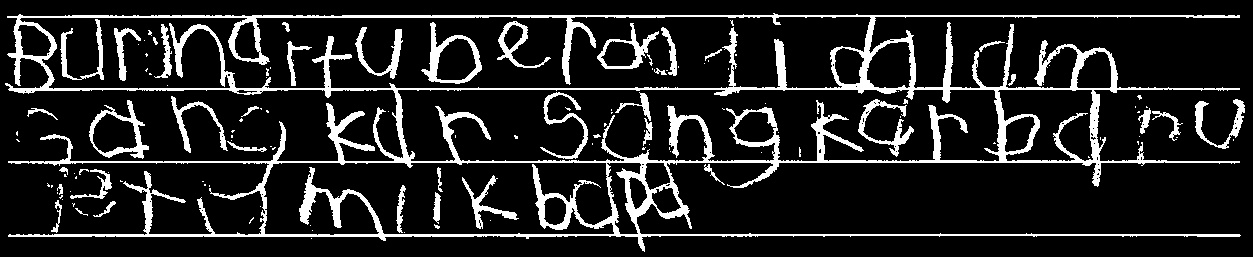 Burung itu berada di dalam
sangkar. Sangkar baru
itu milik bapa